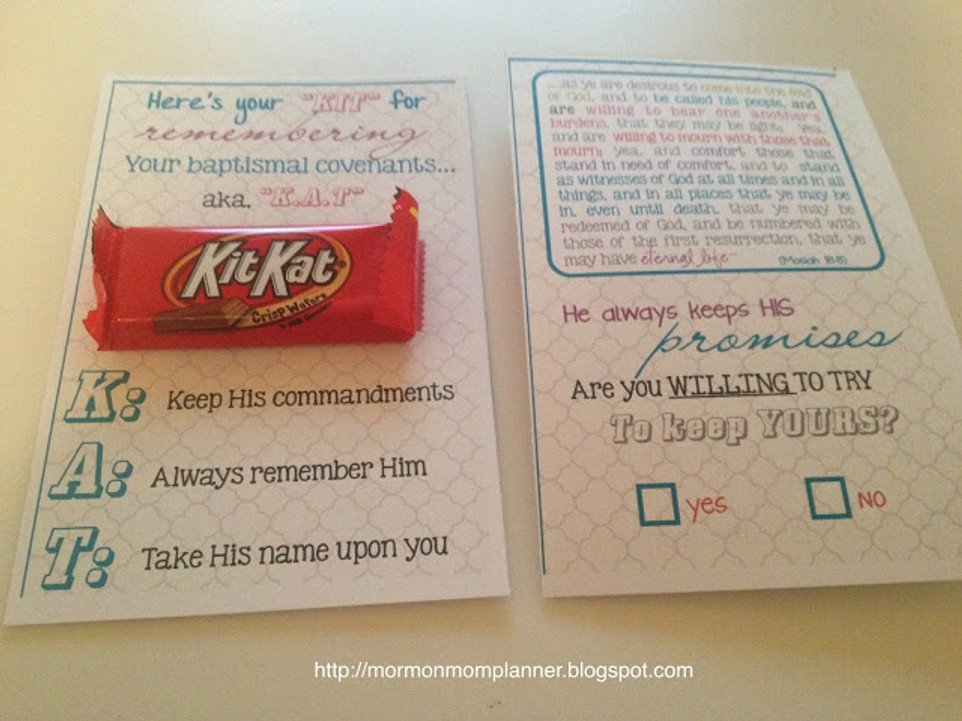 Here's your "KIT" for
remembering
Your baptismal covenants...
aka, "K.A.T"
KitKat
Crisp Wafers
K: Keep His commandments
A: Always remember Him
T: Take His name upon you
....as ye are desirous to come into the fold
of God, and to be called his people, and
are willing to bear one another's
burdens, that they may be light; Yea,
and are willing to mourn with those that
mourn; yea, and comfort those that
stand in need of comfort, and to stand
as witnesses of God at all times and in all
things, and in all places that ye may be
in, even until death, that ye may be
redeemed of God, and be numbered with
those of the first resurrection, that ye
may have eternal life-
(Mosiah 18:8)
He always keeps HIS
promises
Are you WILLING TO TRY
To keep YOURS?
yes NO
http://mormonmomplanner.blogspot.com